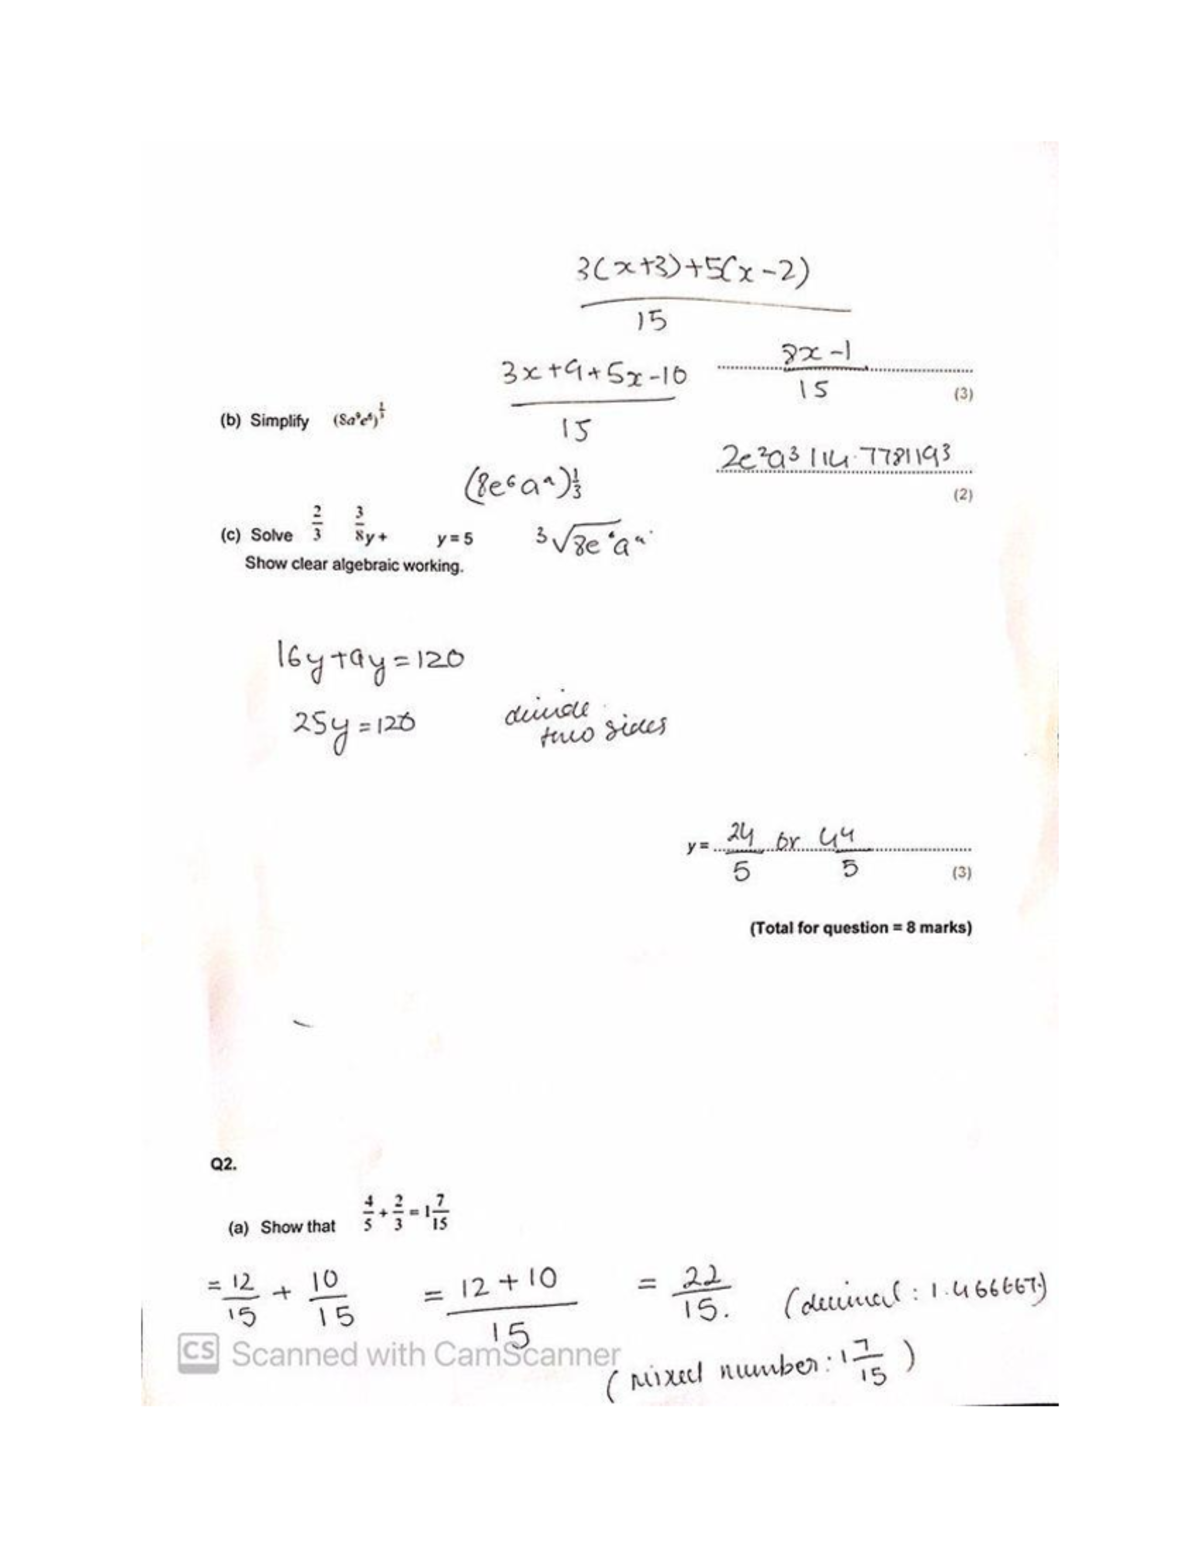 3(x+3)+5(x-2)
15
3x+9+5x-10
15
8x-1
15
(3)
(b) Simplify (8a⁹e⁶)^1/3
2e²a³ | 14.7781193
(2)
(8e⁶a⁹)^1/3
(c) Solve 2/3 3/8 y + y = 5
³√8e⁶a⁹
Show clear algebraic working.
16y+9y=120
25y=120 divide
two sides
y = 24/5 or 4 4/5
(3)
(Total for question = 8 marks)
Q2.
(a) Show that 4/5 + 2/3 = 1 7/15
= 12/15 + 10/15 = 12+10/15 = 22/15. (decimal : 1.466667)
CS Scanned with CamScanner
(mixed number: 1 7/15)